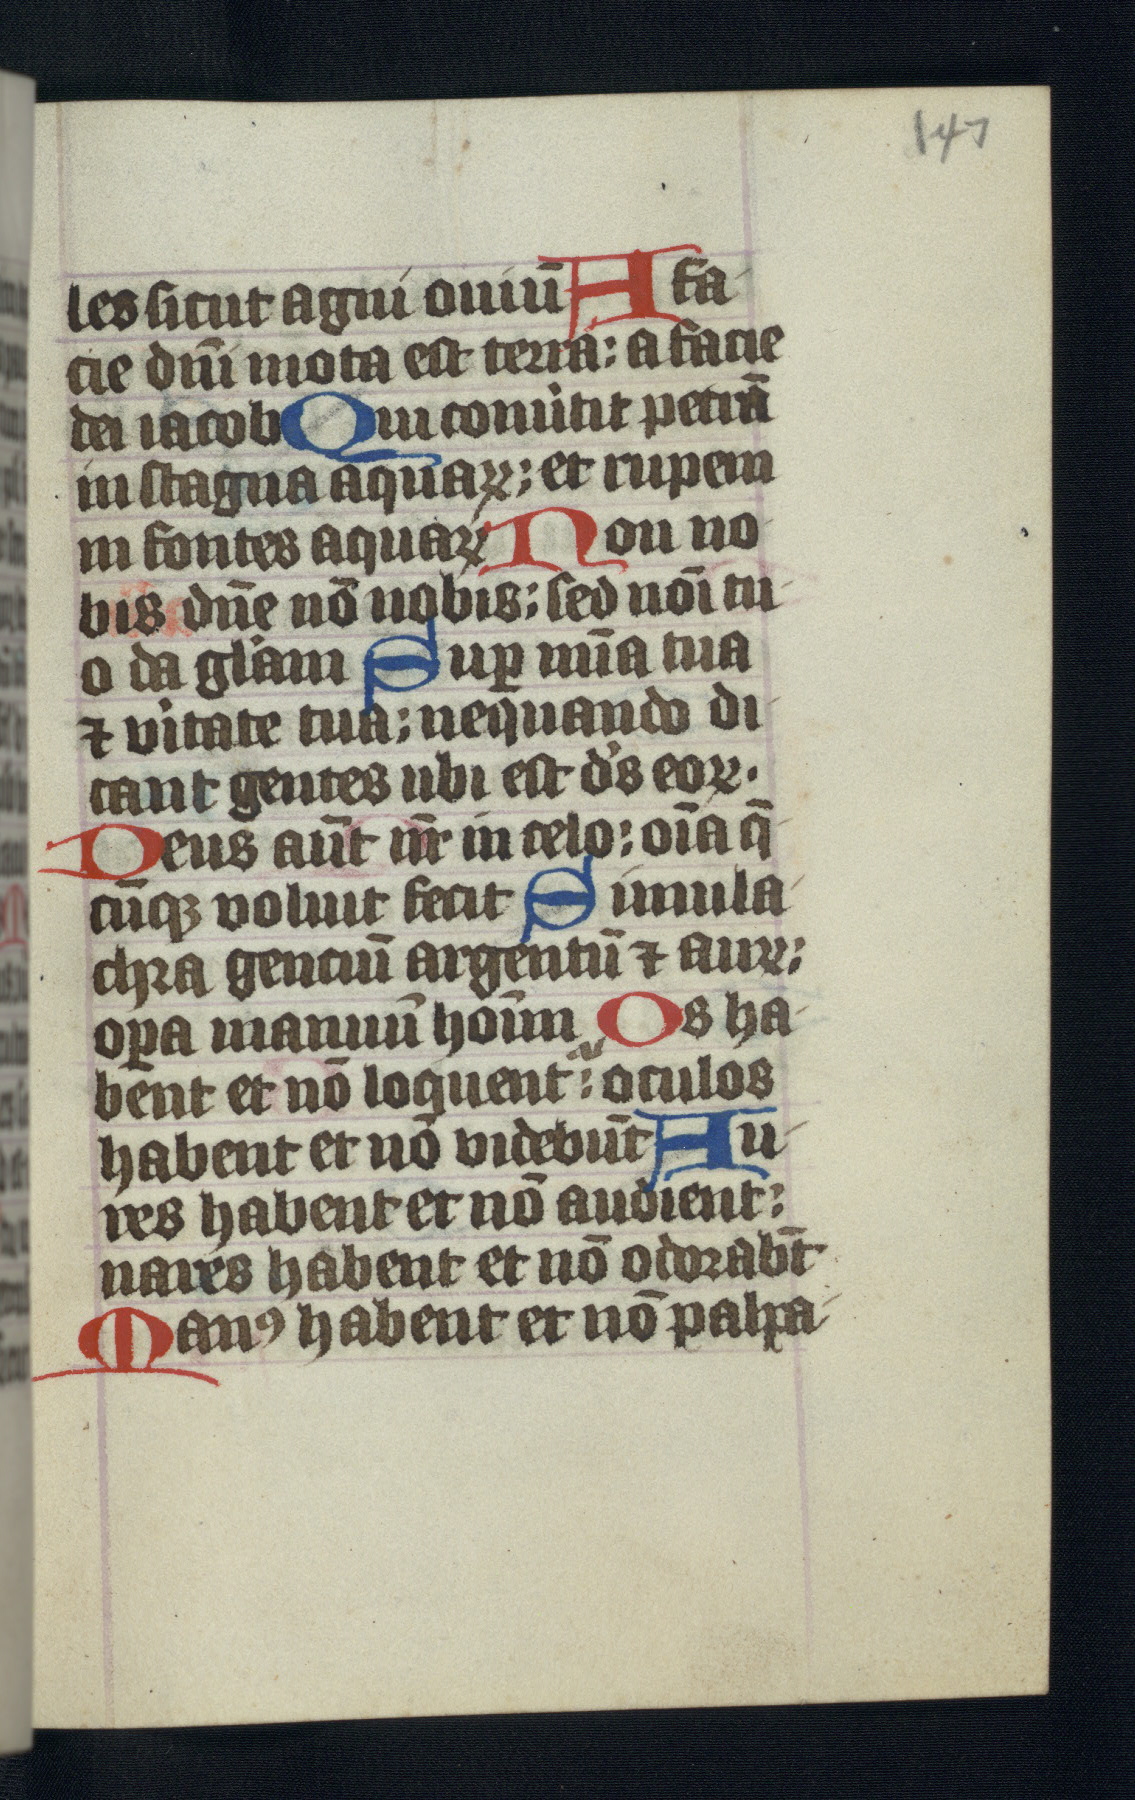 147
les sicut agni ouiū A fa-
cie dn̄i mota est terra: a facie
dei iacob Qui conu̓tit petrā
in stagna aquaꝝ; et rupem
in fontes aquaꝝ Non no
bis dn̄e nō nobis; sed nōi tu-
o da gl̓am Suꝑ mīa tua
⁊ v̓itate tua; nequando di
cant gentes ubi est d̓s eoꝝ.
Deus aūt nr̄ in celo: oīa q̄
cūqꝫ voluit fecit Simula-
chra genciū argentū ⁊ auꝝ;
oꝑa manuū hoīm Os ha-
bēnt et nō loquent᷑: oculos
habent et nō videbūt Au-
res habent et nō audient:
nares habent et nō odorabt̄
Manꝰ habent et nō palpa-